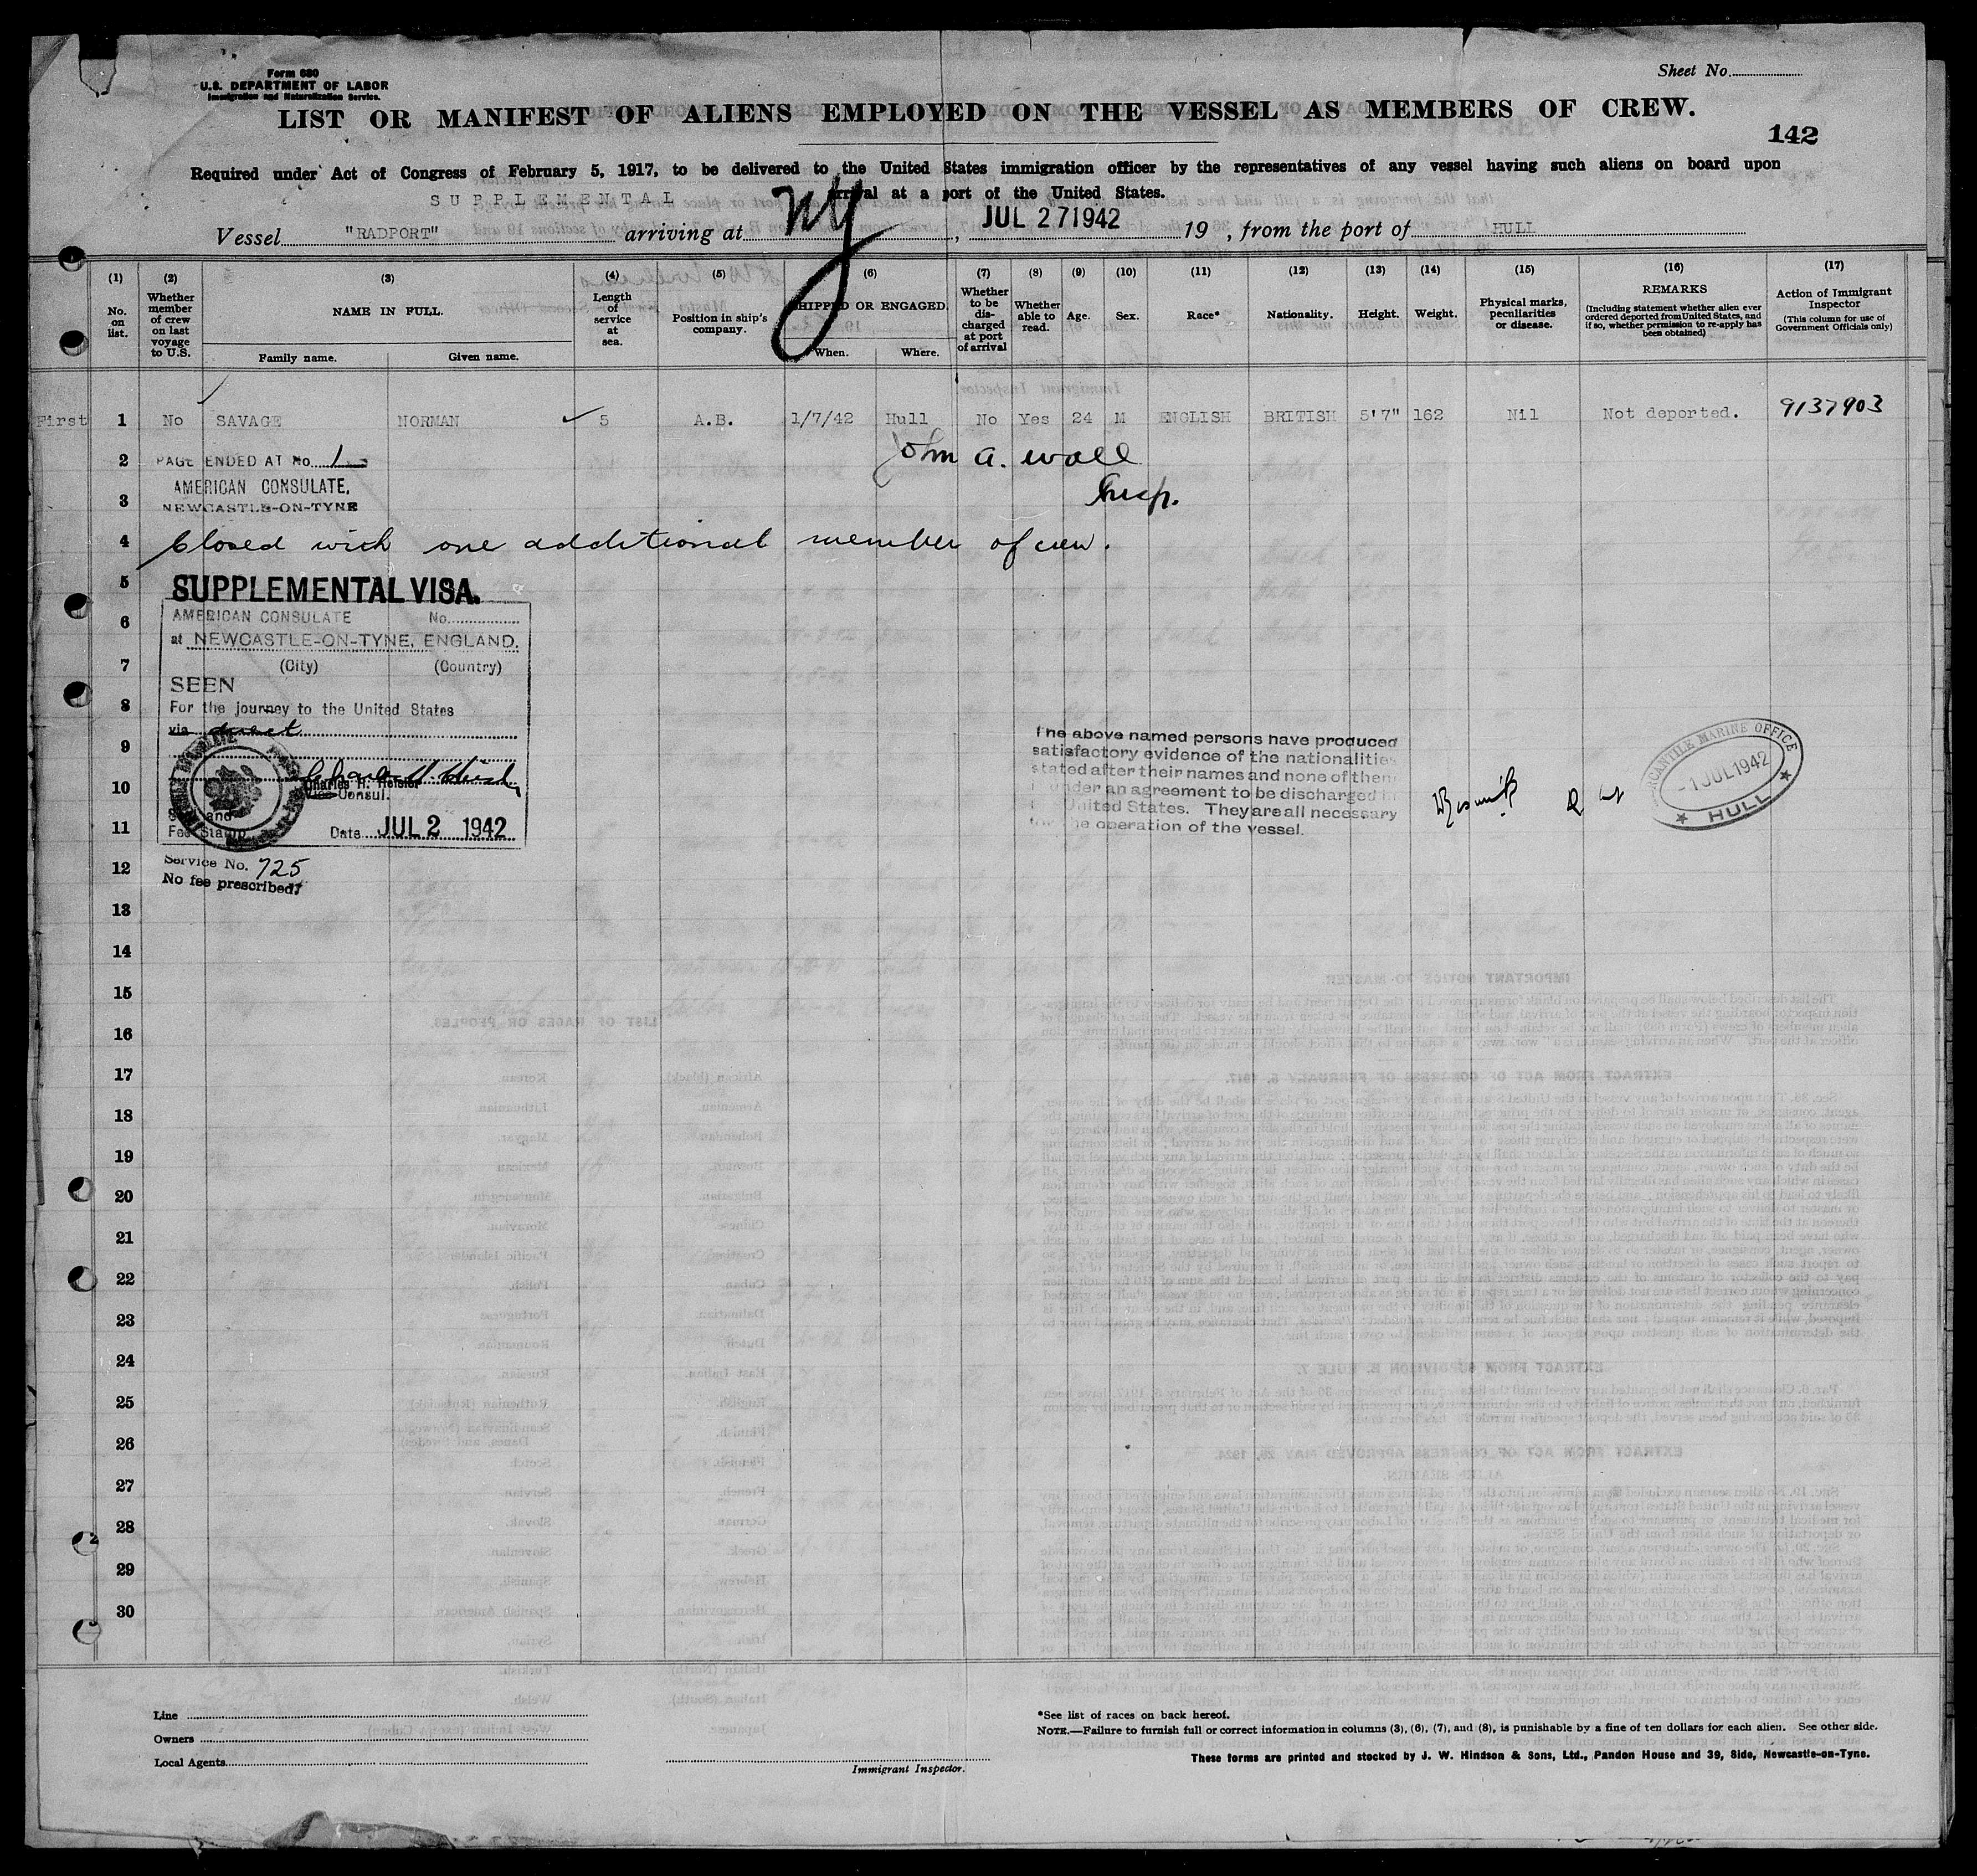 Form 680
U.S. DEPARTMENT OF LABOR
Immigration and Naturalization Service.
Sheet No.
LIST OR MANIFEST OF ALIENS EMPLOYED ON THE VESSEL AS MEMBERS OF CREW.
142
Required under Act of Congress of February 5, 1917, to be delivered to the United States immigration officer by the representatives of any vessel having such aliens on board upon
arrival at a port of the United States.
SUPPLEMENTAL
Vessel "RADPORT" arriving at NY, JUL 27 1942 19 , from the port of HULL
(1) (2) (3) (4) (5) (6) (7) (8) (9) (10) (11) (12) (13) (14) (15) (16) (17)
No. on list.
Whether member of crew on last voyage to U.S.
NAME IN FULL.
Family name.
Given name.
Length of service at sea.
Position in ship's company.
SHIPPED OR ENGAGED.
When.
Where.
Whether to be discharged at port of arrival
Whether able to read.
Age.
Sex.
Race*
Nationality.
Height.
Weight.
Physical marks, peculiarities or disease.
REMARKS
(Including statement whether alien ever ordered deported from United States, and if so, whether permission to re-apply has been obtained)
Action of Immigrant Inspector
(This column for use of Government Officials only)
First 1 No SAVAGE NORMAN 5 A.B. 1/7/42 Hull No Yes 24 M ENGLISH BRITISH 5'7" 162 Nil Not deported. 9137903
2 PAGE ENDED AT No. 1 John A. Wall
AMERICAN CONSULATE,
3 NEWCASTLE-ON-TYNE Insp.
4 Closed with one additional member of crew.
5 SUPPLEMENTAL VISA.
6 AMERICAN CONSULATE No.
at NEWCASTLE-ON-TYNE, ENGLAND.
7 (City) (Country)
SEEN
8 For the journey to the United States
via direct
9
10 Charles H. Heisler
Vice Consul.
Seal and
11 Fee Stamp Date JUL 2 1942
12 Service No. 725
No fee prescribed.
The above named persons have produced
satisfactory evidence of the nationalities
stated after their names and none of them
is under an agreement to be discharged in
the United States. They are all necessary
for the operation of the vessel.
MERCANTILE MARINE OFFICE
-1 JUL 1942
HULL
13
14
15
16
17
18
19
20
21
22
23
24
25
26
27
28
29
30
Line
Owners
Local Agents
Immigrant Inspector.
*See list of races on back hereof.
NOTE.—Failure to furnish full or correct information in columns (3), (6), (7), and (8), is punishable by a fine of ten dollars for each alien. See other side.
These forms are printed and stocked by J. W. Hindson & Sons, Ltd., Pandon House and 39, Side, Newcastle-on-Tyne.